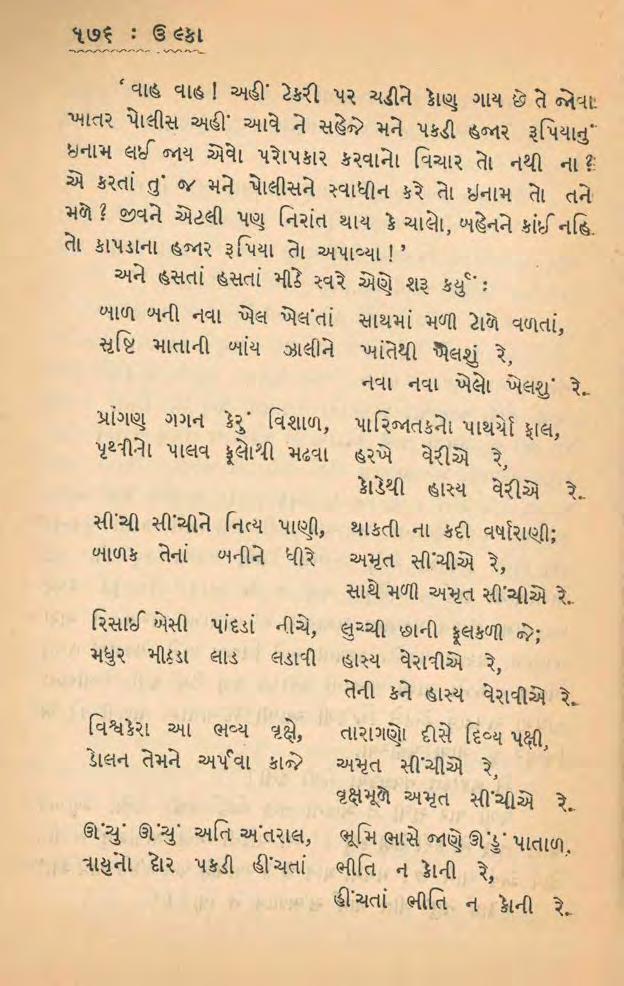 ૫૭૬ : ઉલ્કા
‘ વાહ વાહ ! અહીં ટેકરી પર ચડીને કોણ ગાય છે તે જોવા
ખાતર પોલીસ અહીં આવે ને સહેજે મને પકડી હજાર રૂપિયાનું
ઇનામ લઈ જાય એવો પરોપકાર કરવાનો વિચાર તો નથી ના ?
એ કરતાં તું જ મને પોલીસને સ્વાધીન કરે તો ઇનામ તો તને
મળે ? જીવને એટલી પણ નિરાંત થાય કે ચાલો, બહેનને કાંઈ નહિ
તો કાપડાના હજાર રૂપિયા તો અપાવ્યા ! ’
અને હસતાં હસતાં મીઠે સ્વરે એણે શરૂ કર્યું :
બાળ બની નવા ખેલ ખેલંતાં સાથમાં મળી ટોળે વળતાં,
સૃષ્ટિ માતાની બાંય ઝાલીને ખાંતેથી ખેલશું રે,
નવા નવા ખેલો ખેલશું રે.
પ્રાંગણ ગગન કેરું વિશાળ, પારિજાતકનો પાથર્યો ફાલ,
પૃથ્વીનો પાલવ ફૂલોથી મઢવા હરખે વેરીએ રે,
કોડેથી હાસ્ય વેરીએ રે.
સીંચી સીંચીને નિત્ય પાણી, થાકતી ના કદી વર્ષારાણી;
બાળક તેનાં બનીને ધીરે અમૃત સીંચીએ રે,
સાથે મળી અમૃત સીંચીએ રે.
રિસાઈ બેસી પાંદડાં નીચે, લુચ્ચી છાની ફૂલકળી જે;
મધુર મીઠડા લાડ લડાવી હાસ્ય વેરાવીએ રે,
તેની કને હાસ્ય વેરાવીએ રે.
વિશ્વકેરા આ ભવ્ય વૃક્ષે, તારાગણો દીસે દિવ્ય પક્ષી,
ડોલન તેમને અર્પવા કાજે અમૃત સીંચીએ રે,
વૃક્ષમૂળે અમૃત સીંચીએ રે.
ઊંચું ઊંચું અતિ અંતરાલ, ભૂમિ ભાસે જાણે ઊંડું પાતાળ,
વાયુનો દોર પકડી હીંચતાં ભીતિ ન કોની રે,
હીંચતાં ભીતિ ન કોની રે.